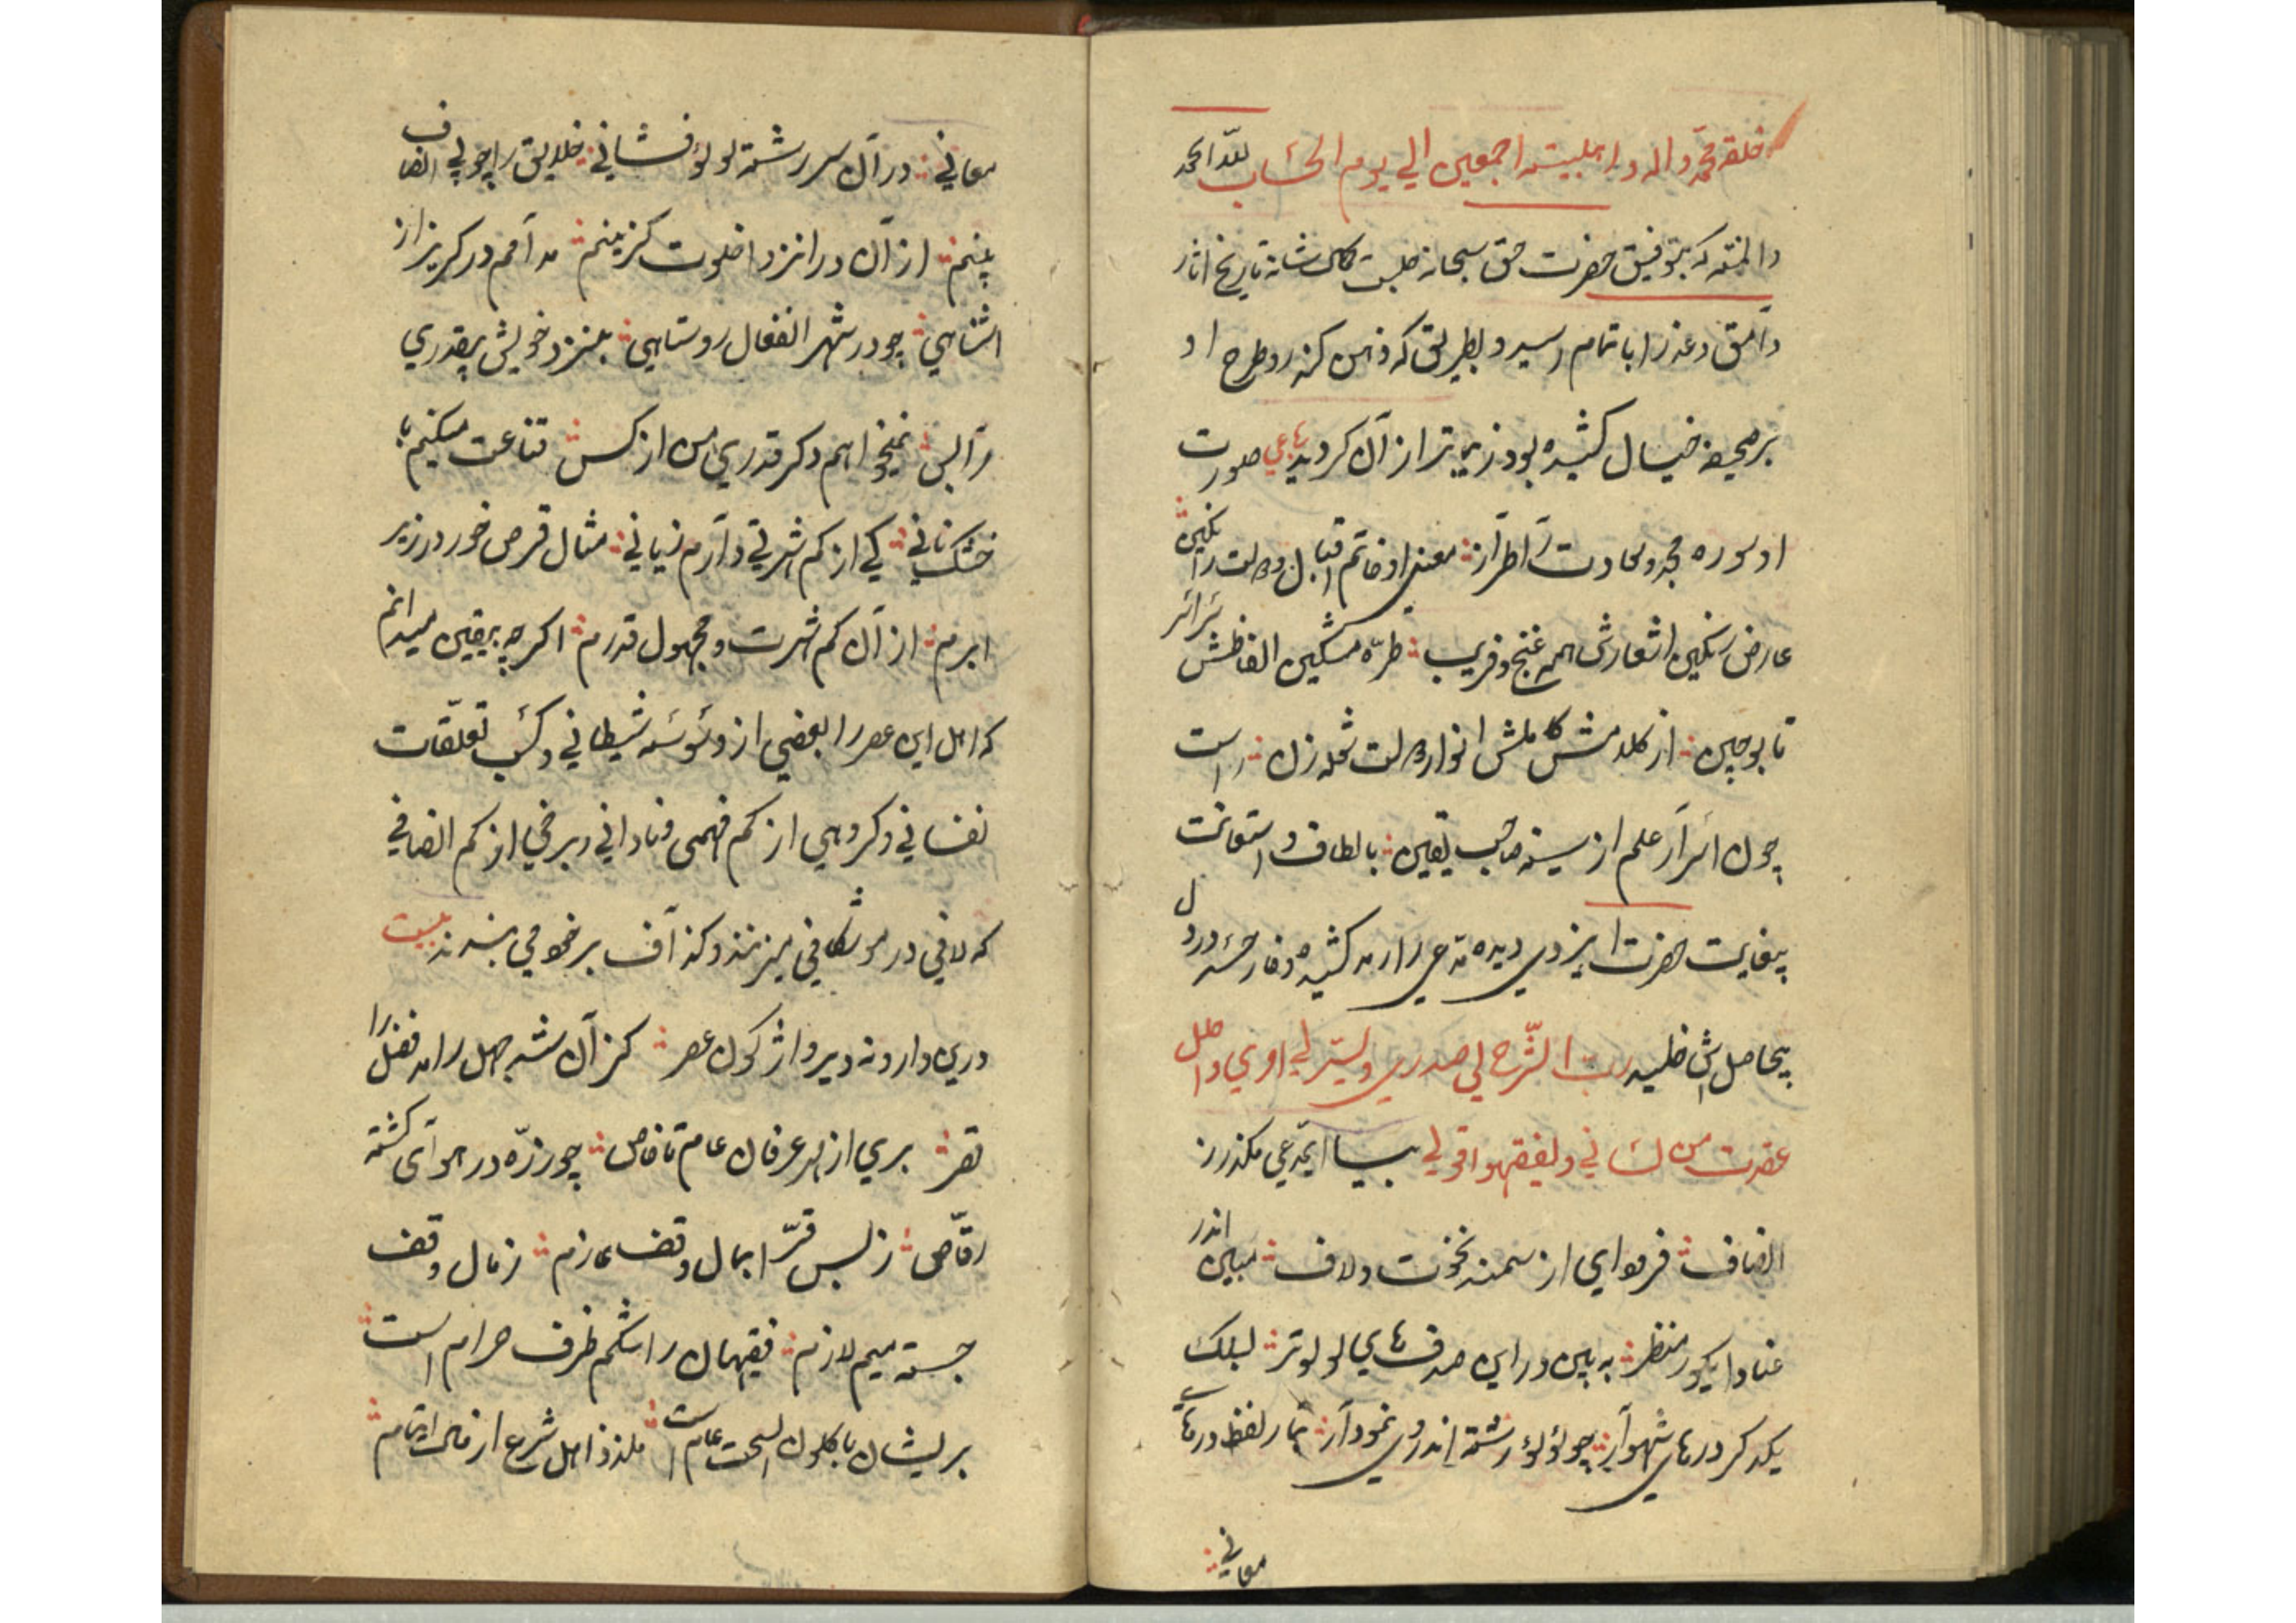 خلقه محمد و اله و اهلبیته اجمعین الی یوم الحساب لله الحمد
والمنته که بتوفیق حضرت حق سبحانه تاریخ اثار
وامق و عذرا باتمام رسید و بطریق که ذهن کند رو طرح او
بر صحیفه خیال کشیده بود زیباتر از آن کردید رباعی صورت
او سوره مجد و سعادت را طراز معنی او خاتم اقبال و دولت را نکین
عارض رنکین اشعارش همه غنج و فریب طره مشکین الفاظش سراسر
تاب و چین از کلامش انوار دولت شعله زن راست
چون اسرار علم از سینه صاحب یقین بالطاف و استعانت
بیغایت حضرت ایزدی دیده مدعی را رمد کشیده و خار حسد در دل
بیحاصل اش خلید رب اشرح لی صدری و یسر لی امری و احلل
عقدت من لسانی ولیفقهوا قولی بیا ایمدعی مکذر ز
انصاف فرود ای از سمند نخوت و لاف مبین اندر
عنادا یکور منظر به بین در این صدفهای لولو تر
یکد کر درهای شهوار چو لؤلؤ رشته اندروی نمودار لفظ درهای
معانی
معانی در آن سر رشته لولؤ فشانی خلایق را چو بی انصاف
بینم از آن در انزوا خلوت کزینم مدامم در کریز از
اشناهی چو در شهر انفعال روستاهی بنزد خویش بیقدری
مرا بس نمیخواهم دکر قدری من از کس قناعت میکنم با
خشک نانی کی از کم شهرتی دارم زیانی مثال قرص خور در زیر
ابرم از آن کم شهرت و مجهول قدرم اکرچه بیقین میدانم
که اهل این عصر را بعضی از وسوسه شیطانی و کسب تعلقات
نفسانی و کروهی از کم فهمی و نادانی و برخی از کم انصافی
که لافی در موشکافی میزنند و کذاف بر خود می بندند بیت
درین وارونه دیر واژکون عصر کز آن شد جهل را مد فضل را
قصر بری از بهر عرفان عام تا خاص چو ذره در هوای کشته
رقاص ز بس قرا بمال وقف عازم ز مال وقف
جسته میم لازم فقیهان را شکم ظرف حرام است
بریشان باکلون السحت عام است اهل شرع از